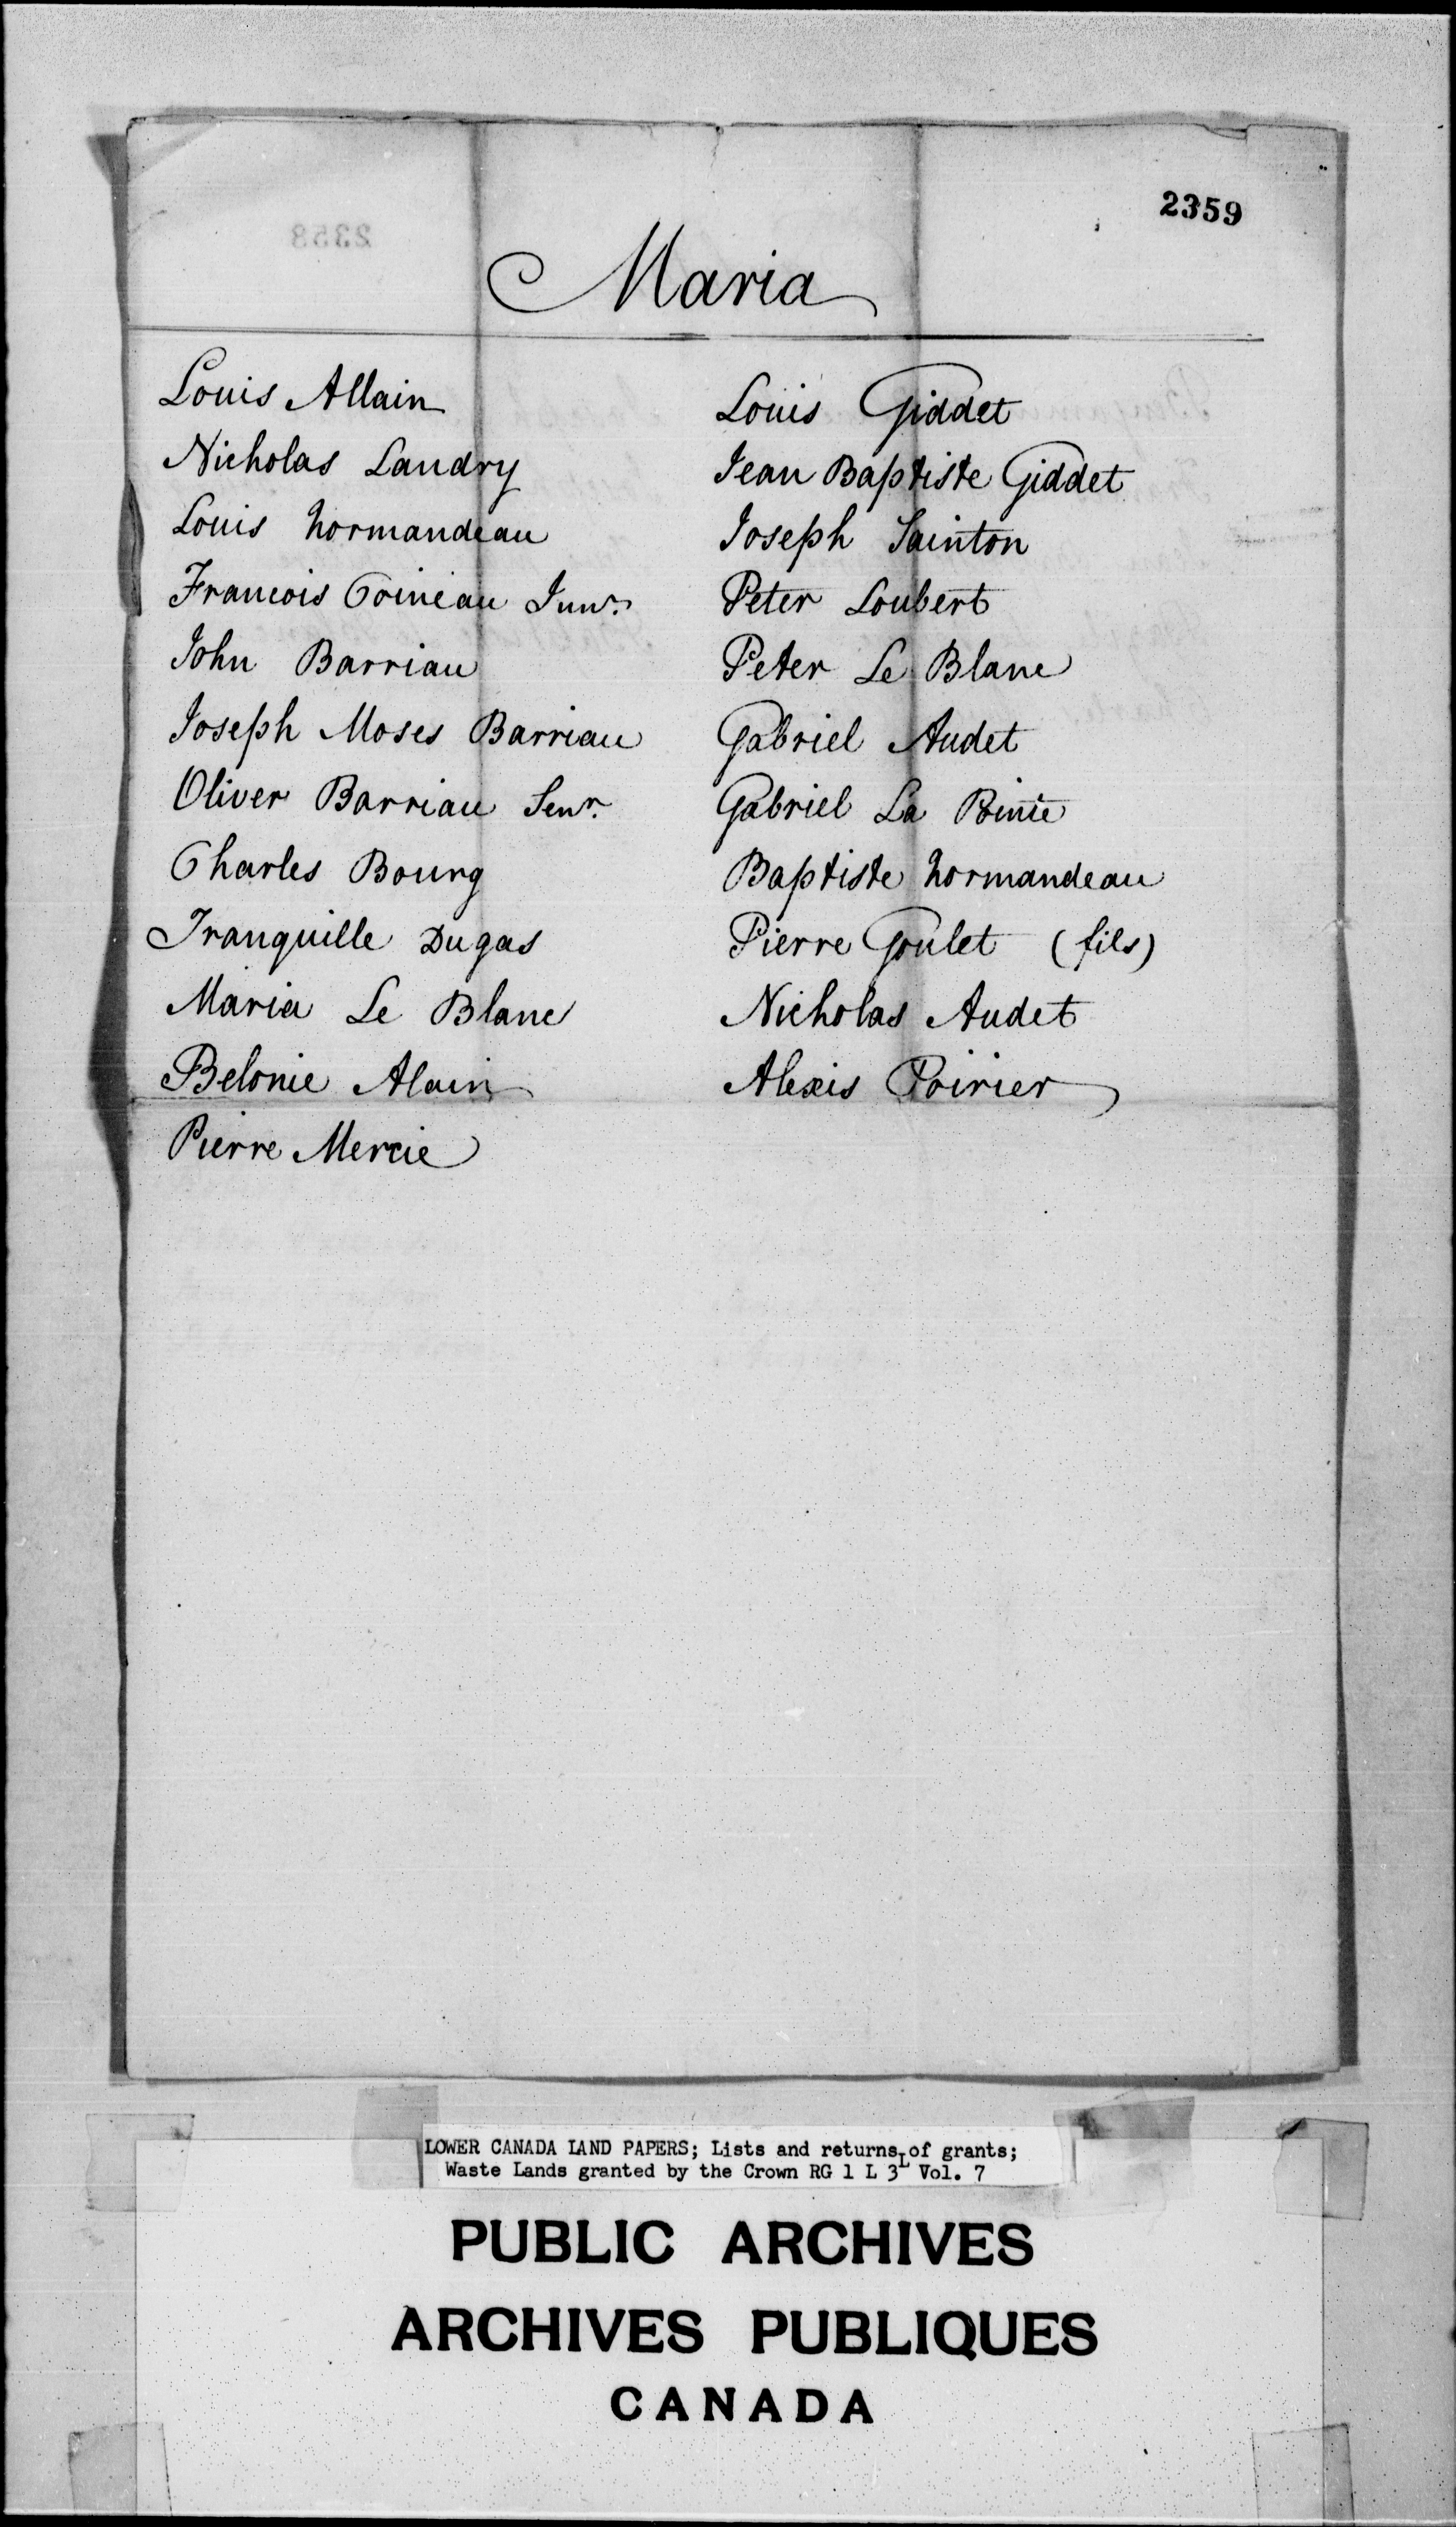 2359
Maria
Louis Allain
Nicholas Landry
Louis Normandeau
Francois Coineau Junr.
John Barriau
Joseph Moses Barriau
Oliver Barriau Senr.
Charles Bourg
Tranquille Dugas
Maria Le Blanc
Belonie Alain
Pierre Mercie
Louis Giddet
Jean Baptiste Giddet
Joseph Sainton
Peter Loubert
Peter Le Blanc
Gabriel Audet
Gabriel La
Baptiste Normandeau
Pierre Goulet (fils)
Nicholas Audet
Alexis Poirier
LOWER CANADA LAND PAPERS; Lists and returns of grants;
Waste Lands granted by the Crown RG 1 L 3L Vol. 7
PUBLIC ARCHIVES
ARCHIVES PUBLIQUES
CANADA